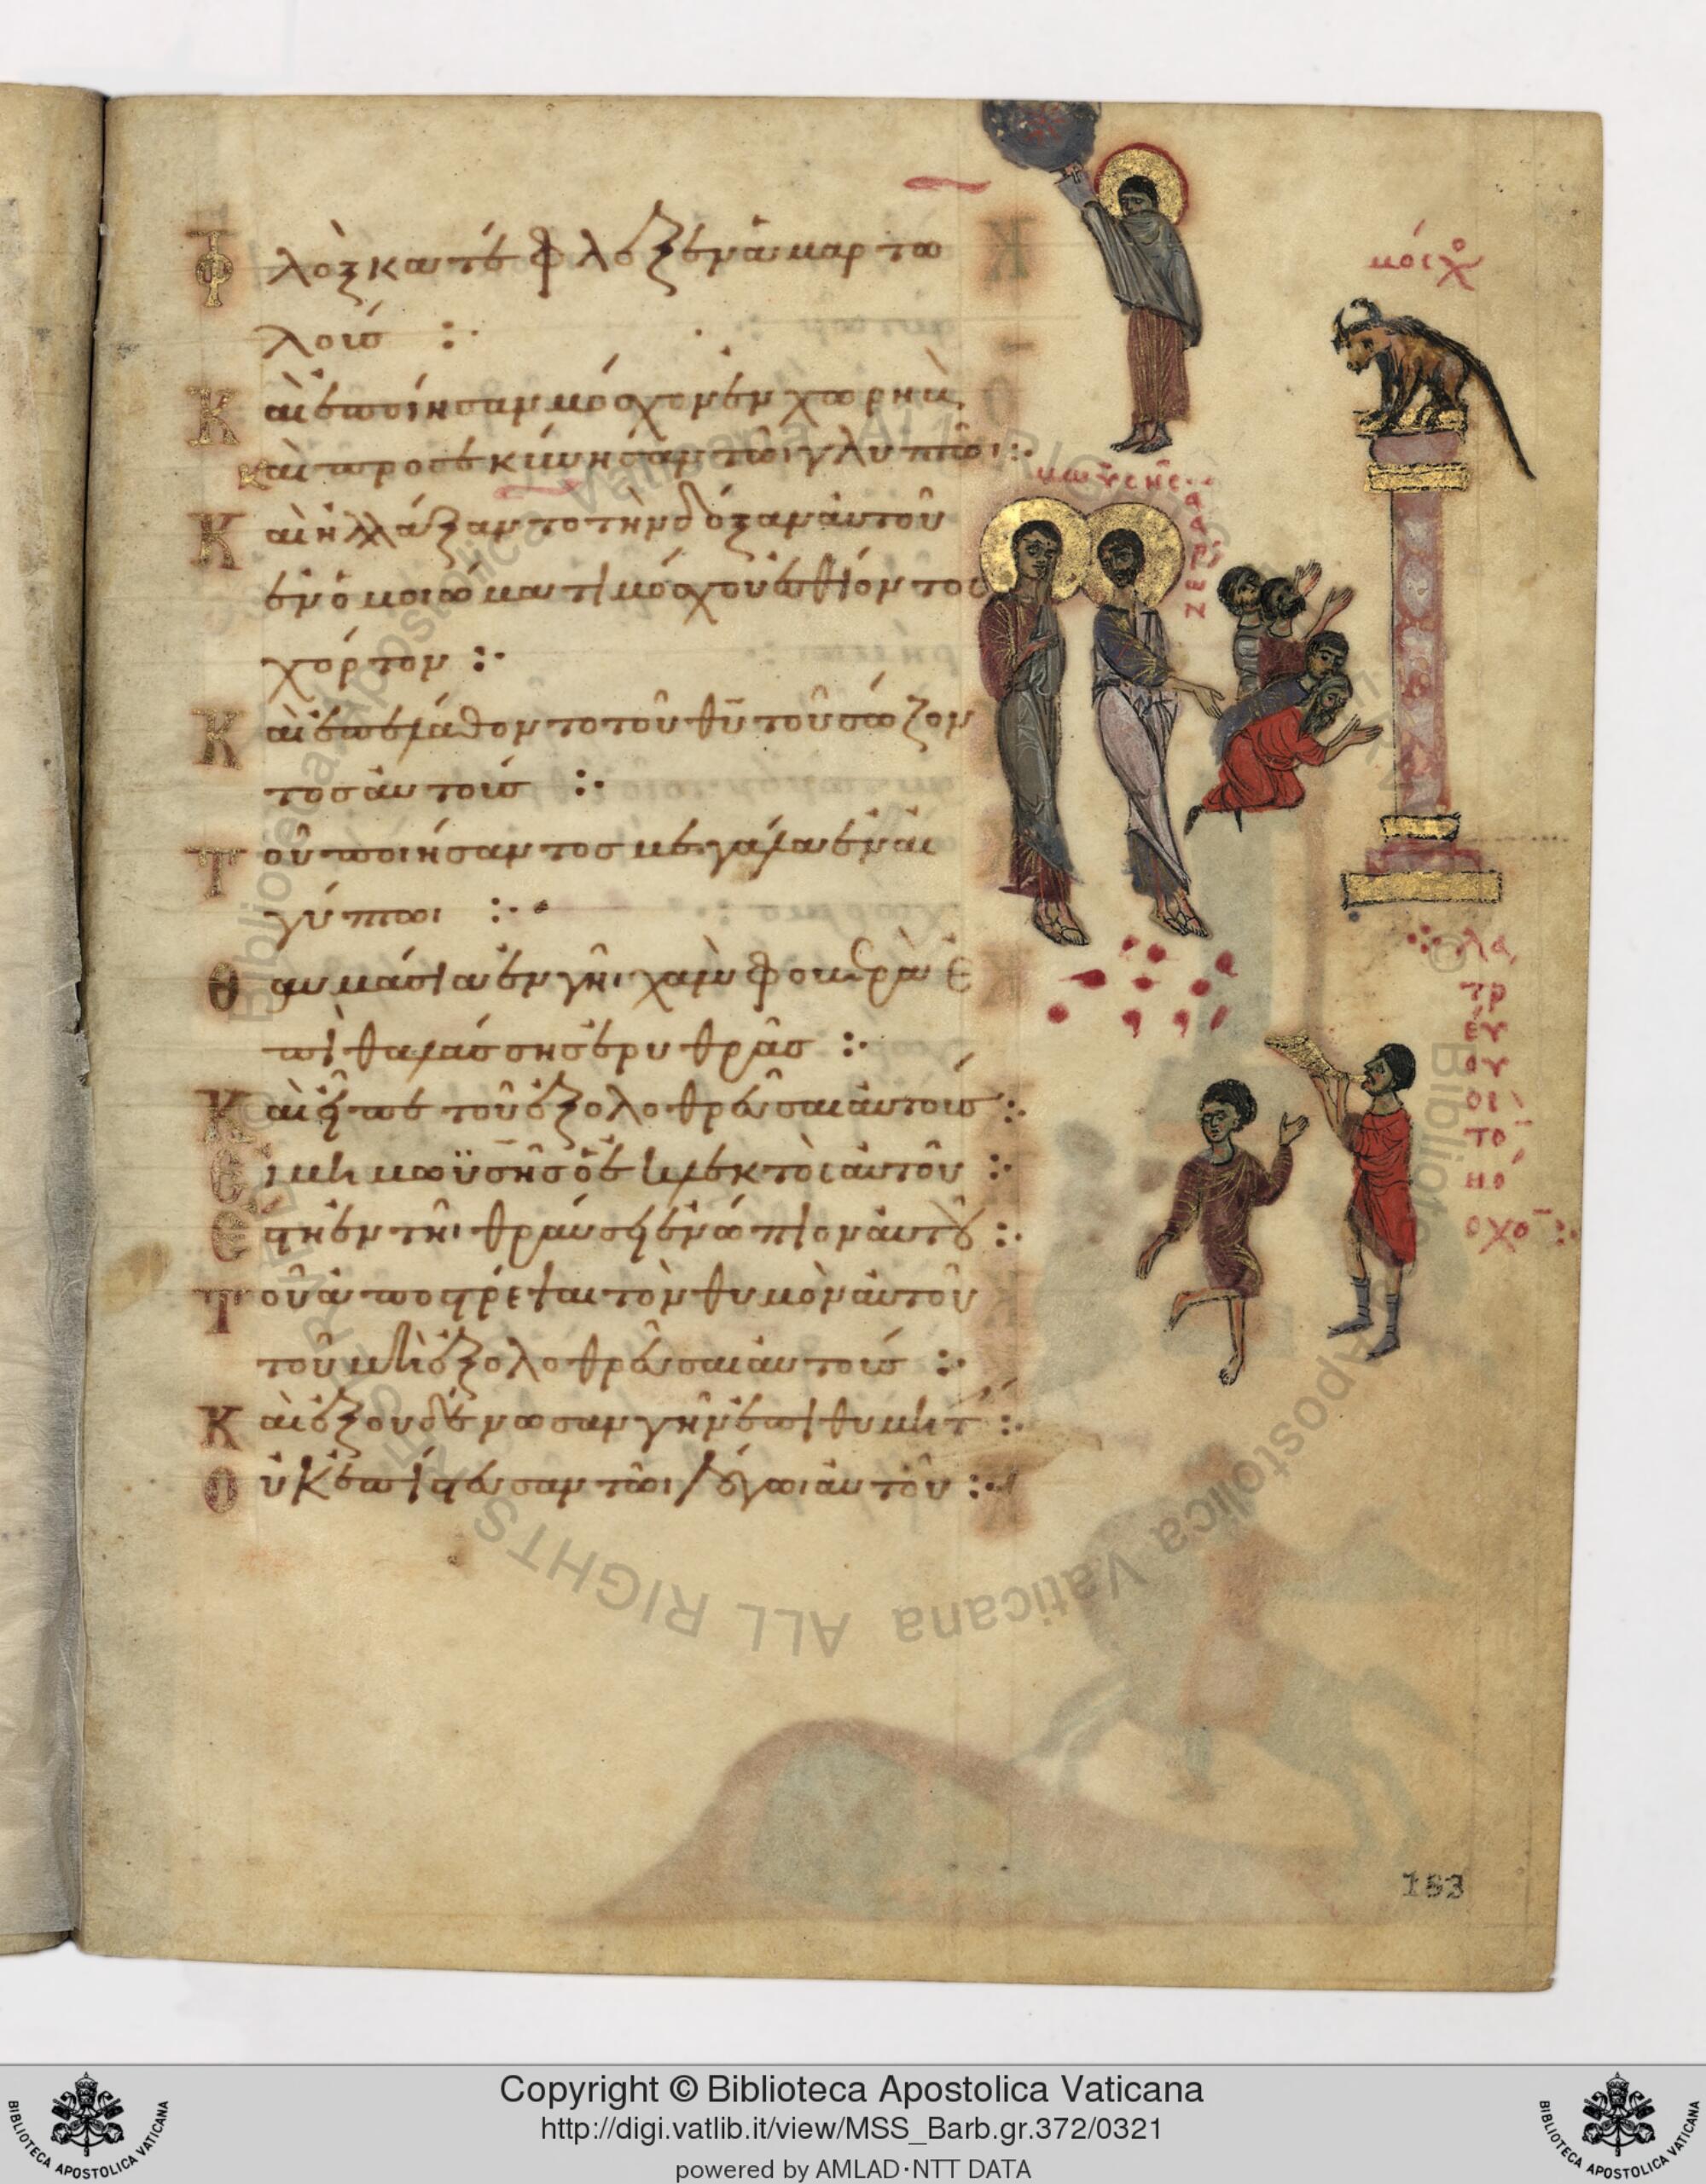 Φλὸξ κατέφλεξεν ἁμαρτω
λούς :·
Καὶ ἐποίησαν μόσχον ἐν χωρὴβ
καὶ προσεκύνησαν τῶι γλυπτῶι :·
Καὶ ἠλλάξαντο τὴν δόξαν ἀυτοῦ
ἐν ὁμοιώματι μόσχου ἐσθίοντος
χόρτον :·
Καὶ ἐπελάθοντο τοῦ θῦ τοῦ σώζον
τος ἀυτούς :·
Τοῦ ποιήσαντος μεγάλα ἐν ἀι
γύπτωι :·
Θαυμάσια ἐν γῆι χαμ φοβερὰ ἐ
πὶ θαλάσσης ἐρυθρᾶς :·
Καὶ εἶπε τοῦ ἐξολοθρεῦσαι ἀυτοὺς :·
Εἰ μὴ μωϋσῆς ὁ ἐκλεκτὸς ἀυτοῦ :·
Ἔστη ἐν τῆι θραύσει ἐνώπιον ἀυτοῦ :·
Τοῦ ἀποστρέψαι τὸν θυμὸν ἀυτοῦ
τοῦ μὴ ἐξολοθρεῦσαι ἀυτούς :·
Καὶ ἐξουδένωσαν γῆν ἐπιθυμητ :·
Οὐκ ἐπίστευσαν τῶι λόγωι ἀυτοῦ :·
μόσχο
μωϋσῆς
ἀαρ
λα
τρ
εύ
ου
σι
το
μό
σχο :·
183
Copyright © Biblioteca Apostolica Vaticana
http://digi.vatlib.it/view/MSS_Barb.gr.372/0321
powered by AMLAD·NTT DATA
BIBLIOTECA APOSTOLICA VATICANA
BIBLIOTECA APOSTOLICA VATICANA